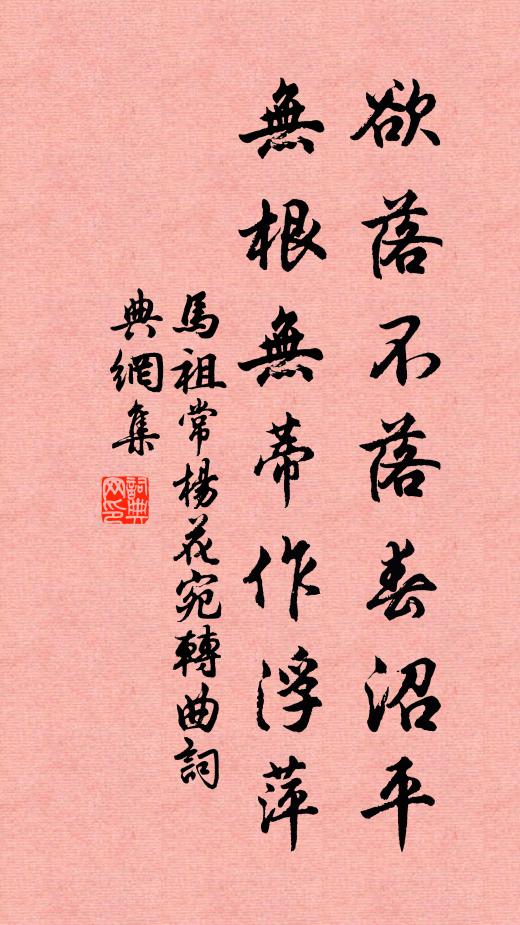 欲落不落春沼平
無根無蒂作浮萍
馬祖常楊花宛轉曲詞
典網集
詞典網印